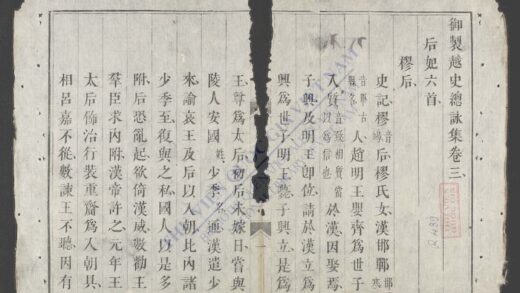 御製越史總詠集卷三
后妃六首
樛后
史記樛后樛氏女漢邯鄲
人趙明王嬰齊爲世子
入質音致相質當以爲信也於漢因娶焉
子興及明王卽位請於漢立爲
興爲世子明王薨子興立是爲
王尊爲太后初后未嫁日嘗與
陵人安國姓少季名通漢遣少
來諭哀王及后以入朝比内諸
少季至復與之私國人以是多
附后恐亂起欲倚漢威數勸王
羣臣求内附漢帝許之元年王
太后飾治行裝重齎爲入朝具
相呂嘉不從數諫王不聽因有
THƯ VIỆN QUỐC GIA VIỆT NAM